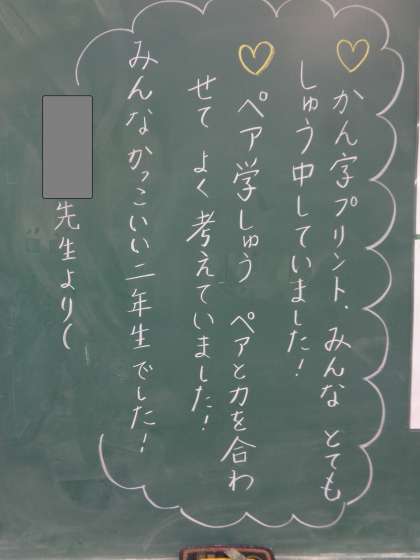 ♡かん字プリント、みんな とても
しゅう中していました！
♡ペア学しゅう ペアと力を合わ
せて よく考えていました！
みんなかっこいい二年生でした！
先生より(